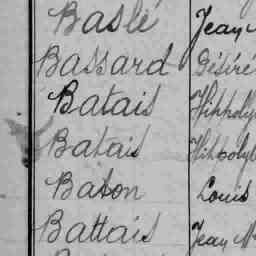 Baslé Jean
Bassard Désiré
Batais Hippoly
Batais Hippolyt
Baton Louis
Battais Jean M